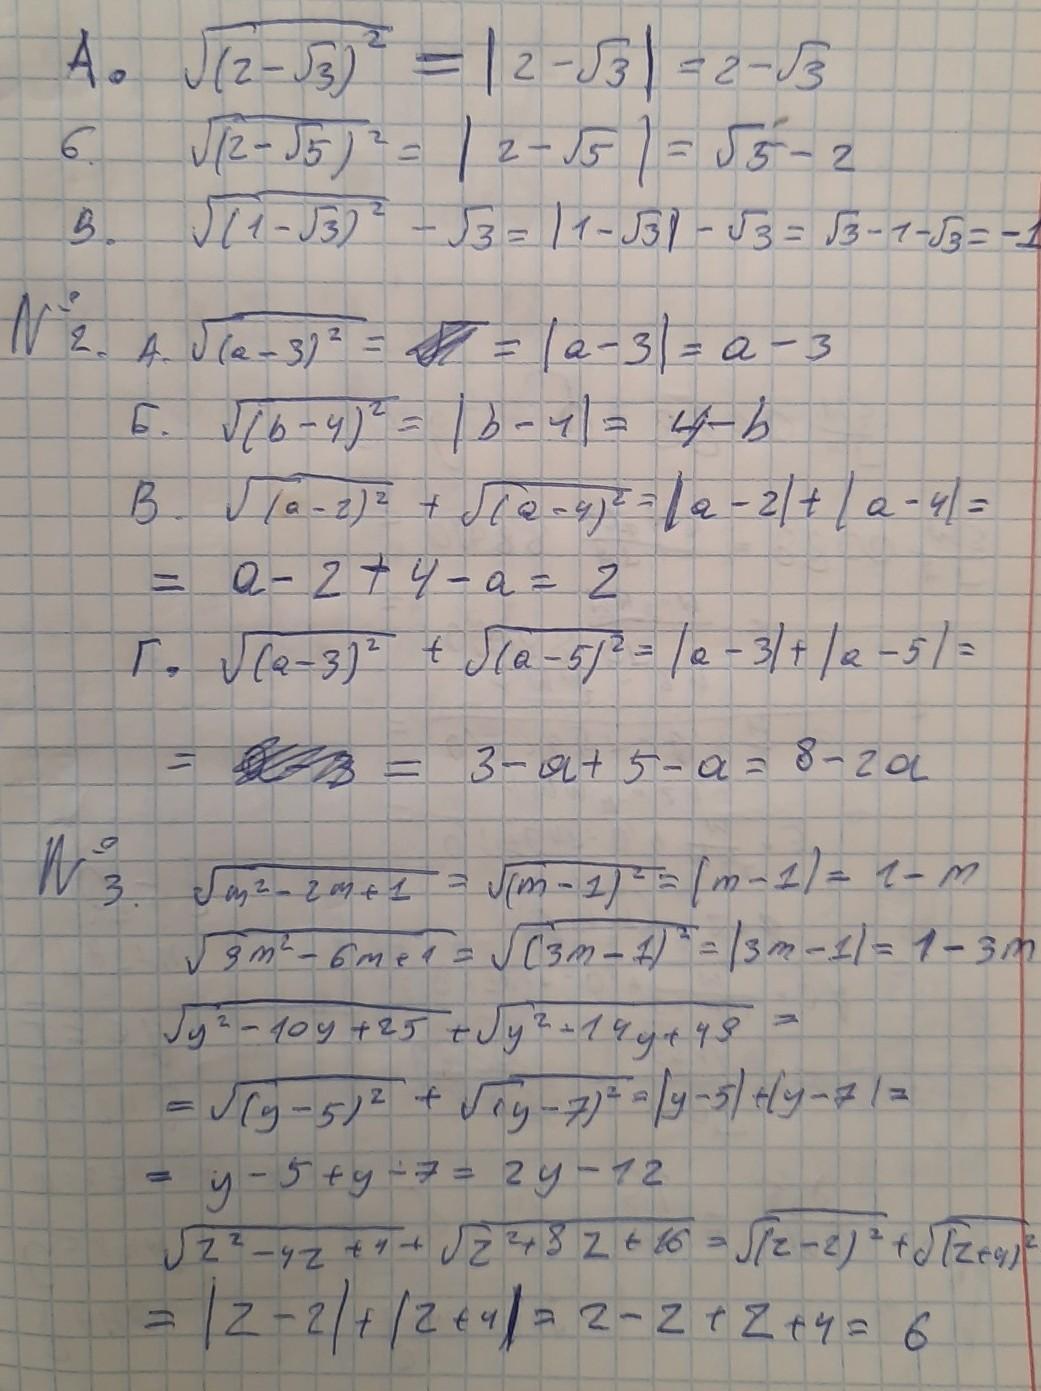 А. √(2-√3)² = |2-√3| = 2-√3
б. √(2-√5)² = |2-√5| = √5-2
В. √(1-√3)² - √3 = |1-√3| - √3 = √3-1-√3 = -1
№2. А. √(a-3)² = = |a-3| = a-3
Б. √(b-4)² = |b-4| = 4-b
В. √(a-2)² + √(a-4)² = |a-2| + |a-4| =
= a-2+4-a = 2
Г. √(a-3)² + √(a-5)² = |a-3| + |a-5| =
= = 3-a+5-a = 8-2a
№3. √m²-2m+1 = √(m-1)² = |m-1| = 1-m
√9m²-6m+1 = √(3m-1)² = |3m-1| = 1-3m
√y²-10y+25 + √y²-14y+49 =
= √(y-5)² + √(y-7)² = |y-5| + |y-7| =
= y-5+y-7 = 2y-12
√z²-4z+4 + √z²+8z+16 = √(z-2)² + √(z+4)²
= |z-2| + |z+4| = 2-z+z+4 = 6